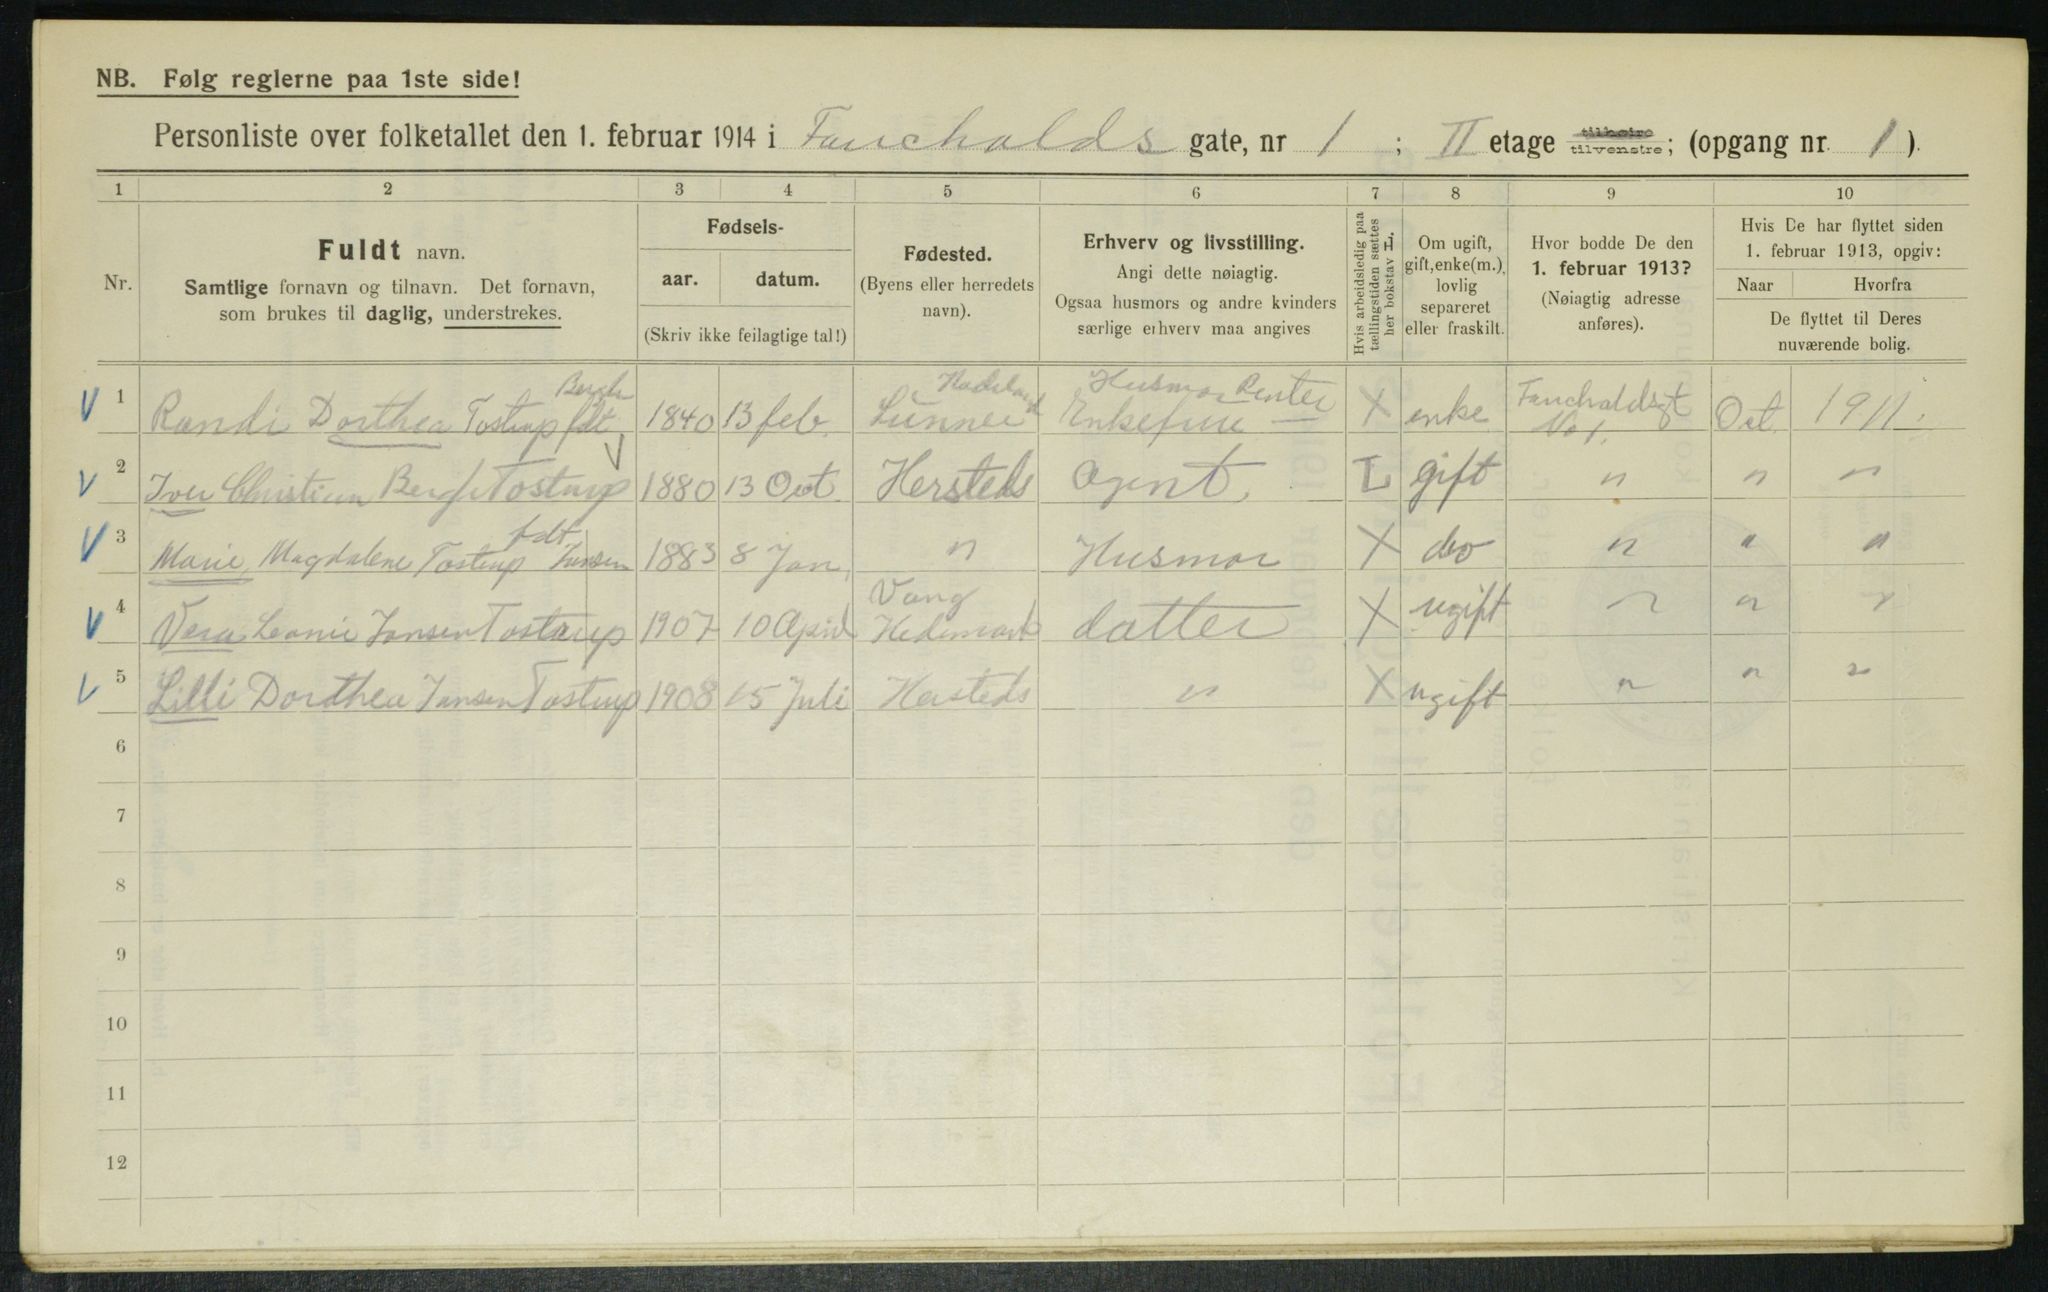 NB. Følg reglerne paa 1ste side!
Personliste over folketallet den 1. februar 1914 i Fauchalds gate, nr 1 ; II etage tilhøire tilvenstre; (opgang nr. 1).
1 2 3 4 5 6 7 8 9 10
Nr.
Fuldt navn.
Samtlige fornavn og tilnavn. Det fornavn,
som brukes til daglig, understrekes.
Fødsels-
aar. datum.
(Skriv ikke feilagtige tal!)
Fødested.
(Byens eller herredets
navn).
Erhverv og livsstilling.
Angi dette nøiagtig.
Ogsaa husmors og andre kvinders
særlige erhverv maa angives
Hvis arbeidsledig paa
tællingstiden sættes
her bokstav L.
Om ugift,
gift, enke(m.),
lovlig
separeret
eller fraskilt.
Hvor bodde De den
1. februar 1913?
(Nøiagtig adresse
anføres).
Hvis De har flyttet siden
1. februar 1913, opgiv:
Naar Hvorfra
De flyttet til Deres
nuværende bolig.
Hadeland Husmor Renter
1 Randi Dorthea Tostrup fdt 1840 13 feb. Lunner Enkefrue X enke Fauchaldsgt No 1. Oct. 1911.
2 Iver Christian Bergh Tostrup 1880 13 Oct Hersteds Agent. L gift " " "
fdt
3 Marie Magdalene Tostrup Jansen 1883 8 Jan. " Husmor X do " " "
Vang
4 Vera Leonie Jansen Tostrup 1907 10 April Hedemark datter X ugift " " "
5 Lilli Dorthea Jansen Tostrup 1908 15 Juli Hersteds " X ugift " " "
6
7
8
9
10
11
12